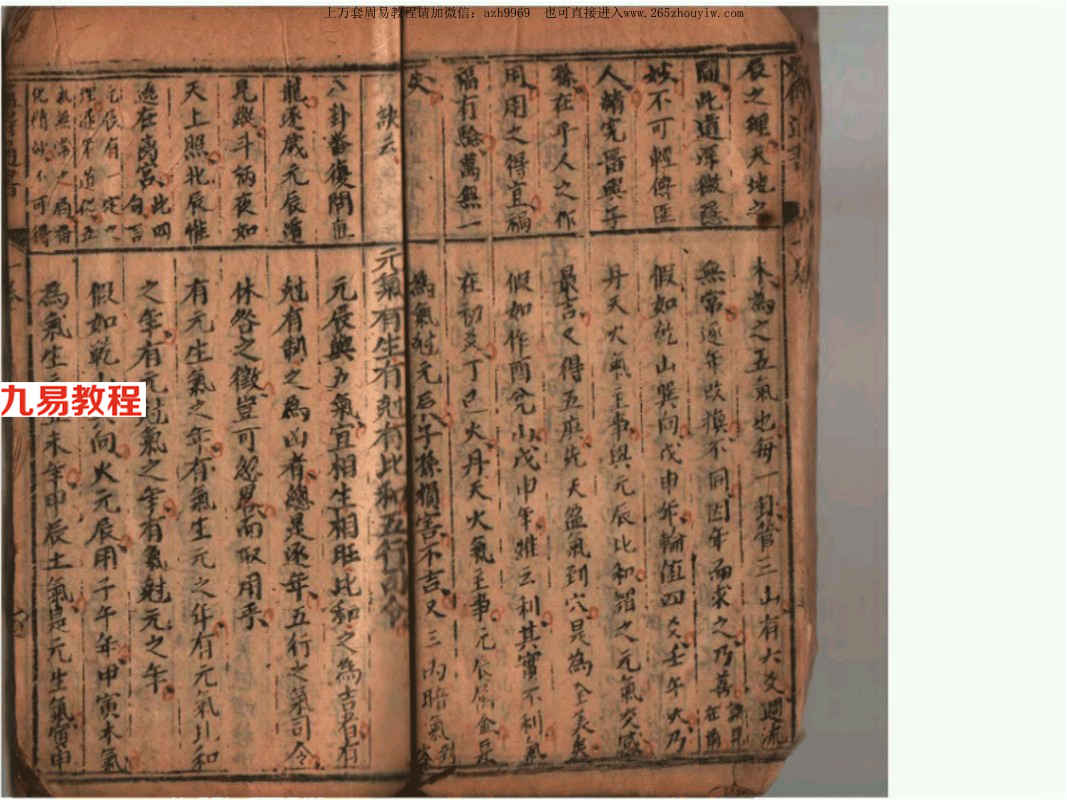 上万套周易教程请加微信：azh9969　也可直接进入www.265zhouyiw.com
九易教程
辰之理天地之
間此道渾微慈
妙不可輕傳匪
人請究畱與年
孫在乎人之作
用用之得宜福
福有驗萬無一
失
訣云
八卦番復問
龍逐歲元辰運
見蹤斗柄夜如
天上照北辰惟
遊在离宮此四句言
元辰有一定之
理
木為之五氣也每一卦管三山有六爻週流
無常逐年改換不同因年而求之乃善
假如乾山巽向戊申年輪值四爻壬午火乃
丹天火氣主事與元辰比和謂之元氣交感
最吉又得五麻先天盆氣到穴是為全美矣
假如作酉兌山戊申年雖云利其實不利氣
在初爻丁巳火丹天火氣主事元辰屬金是
為氣尅元辰子孫損害不吉又三
元氣有生有尅有比和五行司令
元辰與五氣宜相生相旺比和之為吉者有
尅有制之為凶者總是逐年五行之氣司令
休咎之徵豈可忽畧而取用乎
有元生氣之年有氣生元之年有元氣比和
之年有元尅氣之年有氣尅元之年
假如乾山向火元辰用子午年甲寅木氣
為氣生丑未年甲辰土氣是元生氣寅申